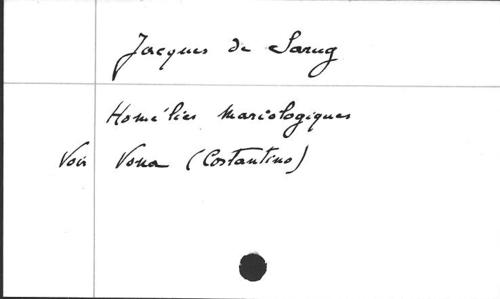 Jacques de Sarug
Homélies mariologiques
Voir Vona (Costantino)